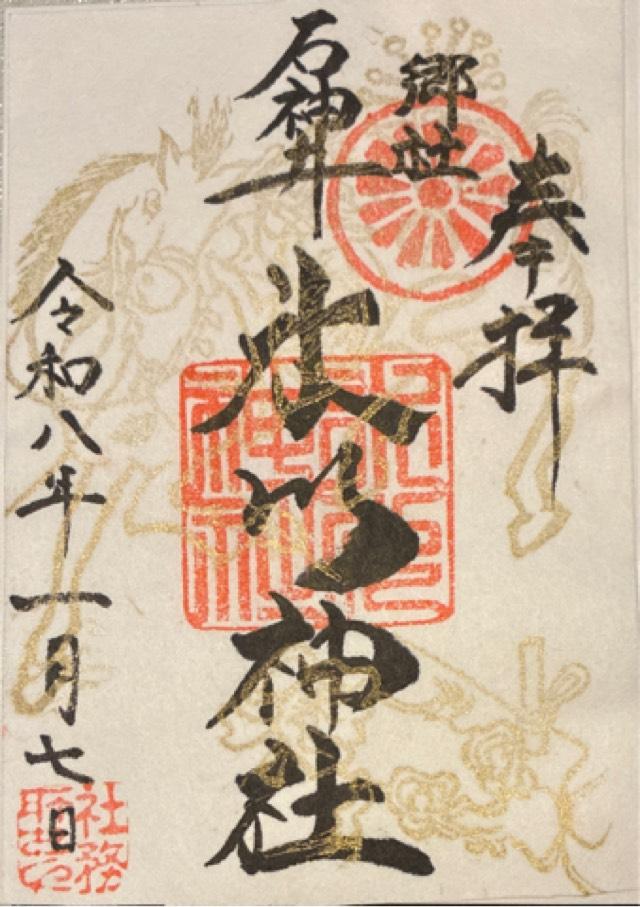 奉拝
郷社
石神井
氷川神社
令和八年一月七日
氷川神社
社務所印